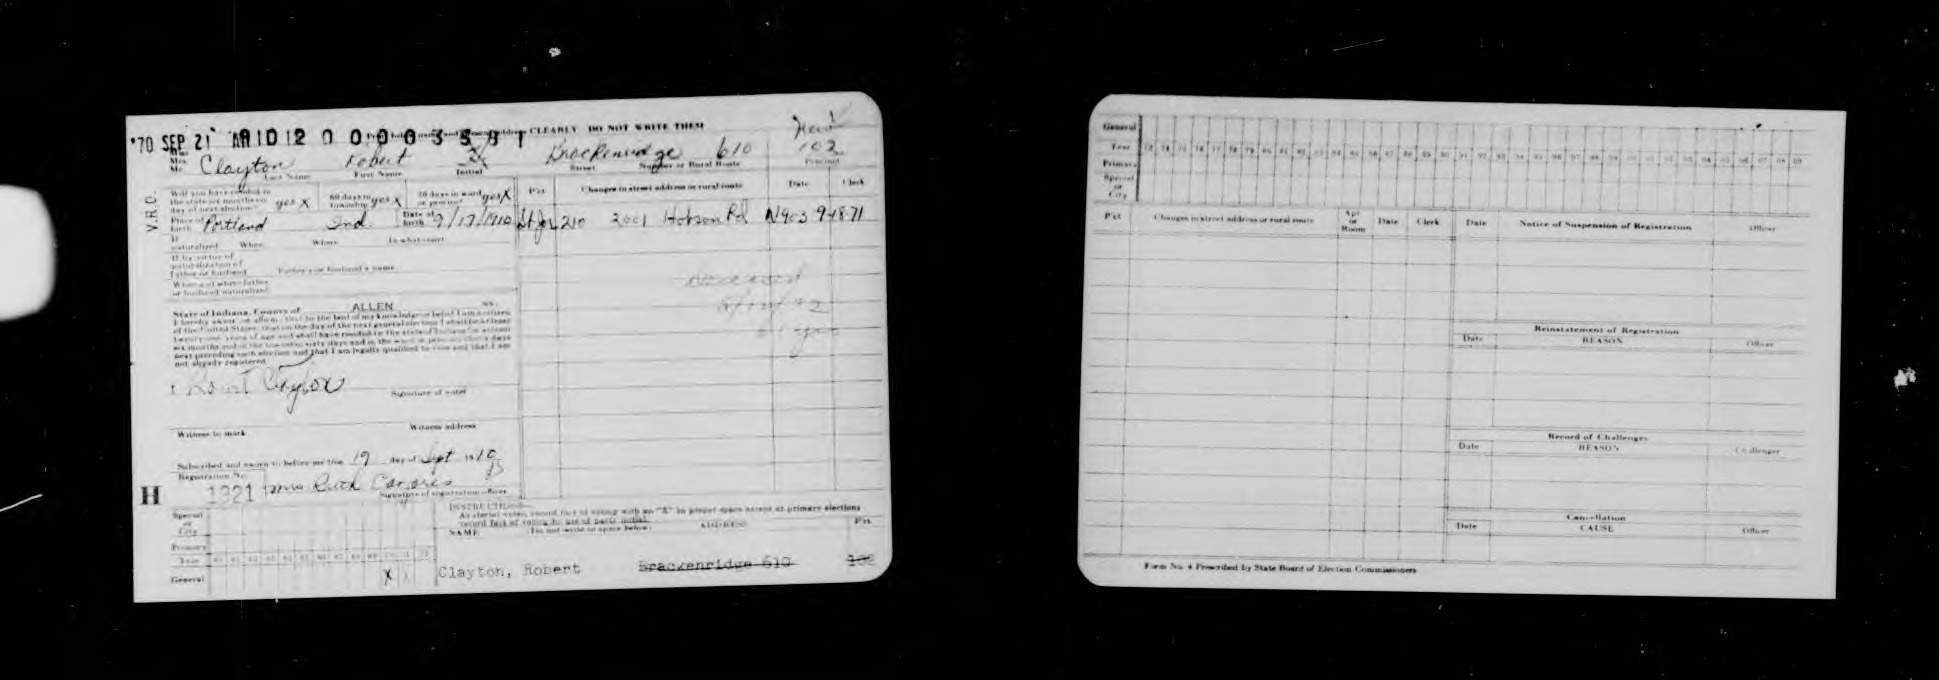 '70 SEP 21 AM 10 12 0 0 0 0 3 5 8 1
CLEARLY DO NOT WRITE THEM
New
Mrs. Clayton Robert Brackenridge 610 102
Mr. Last Name First Name Initial Street Number or Rural Route Precinct
V.R.C.
Will you have resided in the state six months on day of next election? yes X 60 days in township yes X 30 days in ward or precinct yes X
Pct Changes in street address or rural route Date Clerk
Place of birth Portland Ind. Date of birth 9/17/1910
St Jos 210 2001 Hobson Rd N903 9-18-71
If naturalized When Where In what court
If by virtue of naturalization of Father or husband Father's or husband's name
When and where father or husband naturalized
Deceased
State of Indiana, County of ALLEN ss:
I hereby swear or affirm, that to the best of my knowledge or belief I am a citizen
of the United States, that on the day of the next general election I shall be at least
twenty-one years of age and shall have resided in the state of Indiana for at least
six months and in the township sixty days and in the ward or precinct thirty days
next preceding such election and that I am legally qualified to vote and that I am
not already registered.
Robert Clayton
Signature of voter
Witness to mark Witness address
Subscribed and sworn to before me this 19 day of Sept 19
Registration No.
H 1321 Mrs Ruth
Signature of registration officer
INSTRUCTIONS—
As elector votes, record fact of voting with an "X" in proper space except at primary elections
record fact of voting by use of party initial.
NAME (Do not write in space below) ADDRESS Pct.
Special or City
Primary
Year
General X
Clayton, Robert Brackenridge 610 102
General
Year 73 74 75 76 77 78 79 80 81 82 83 84 85 86 87 88 89 90 91 92 93 94 95 96 97 98 99 00 01 02 03 04 05 06 07 08 09
Primary
Special or City
Pct Changes in street address or rural route Apt. or Room Date Clerk
Date Notice of Suspension of Registration Officer
Reinstatement of Registration
Date REASON Officer
Record of Challenges
Date REASON Challenger
Cancellation
Date CAUSE Officer
Form No. 4 Prescribed by State Board of Election Commissioners